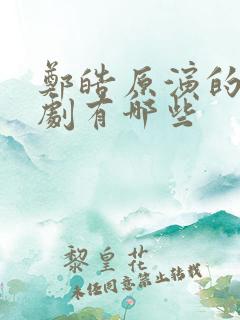 鄭皓原演的
劇有哪些
黎皇花
未任同意禁止转载